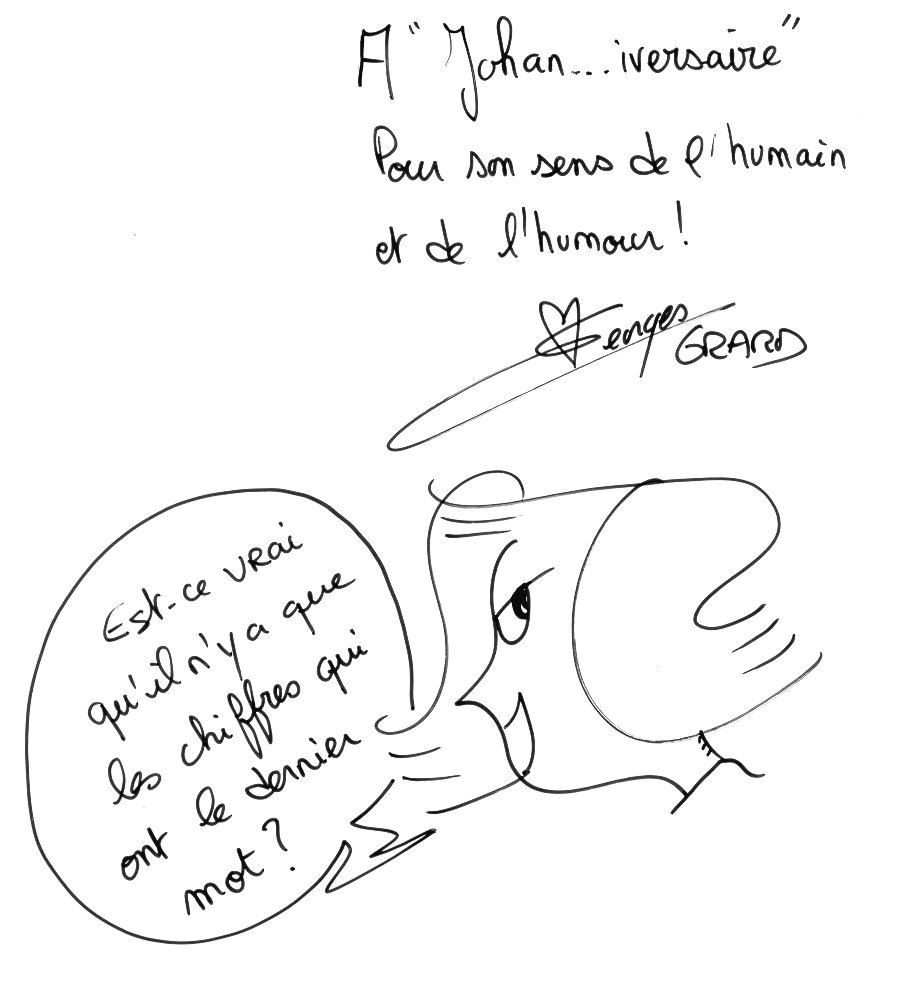 A "Johan...iversaire"
Pour son sens de l'humain
et de l'humour !
Georges GRARD
Est-ce vrai
qu'il n'y a que
les chiffres qui
ont le dernier
mot ?